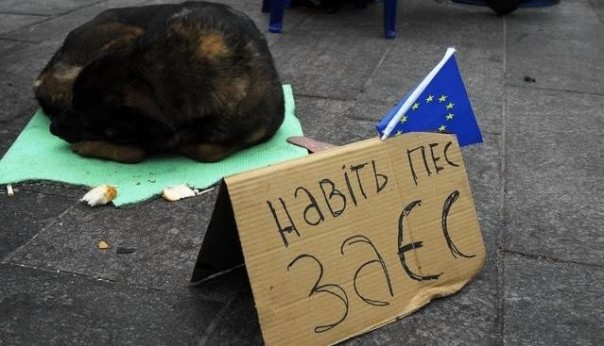 навіть пес
ЗаЄС